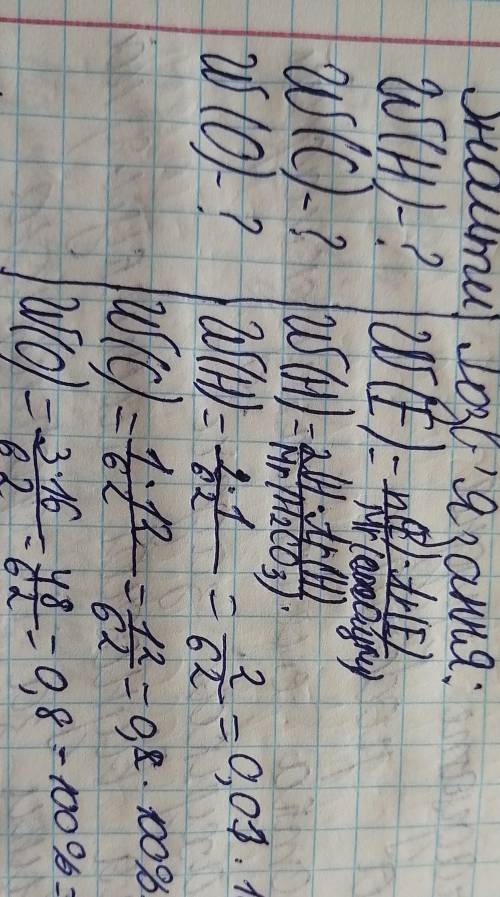 Знайти Розв'язання:
W(H)-? W(E)=n(E)·Ar(E)/Mr(
W(C)-? W(H)=2H·Ar(H)/Mr(H2CO3).
W(O)-? W(H)=2·1/62=2/62=0,03·1
W(C)=1·12/62=12/62=0,2·100%
W(O)=3·16/62=48/62=0,8=100%=